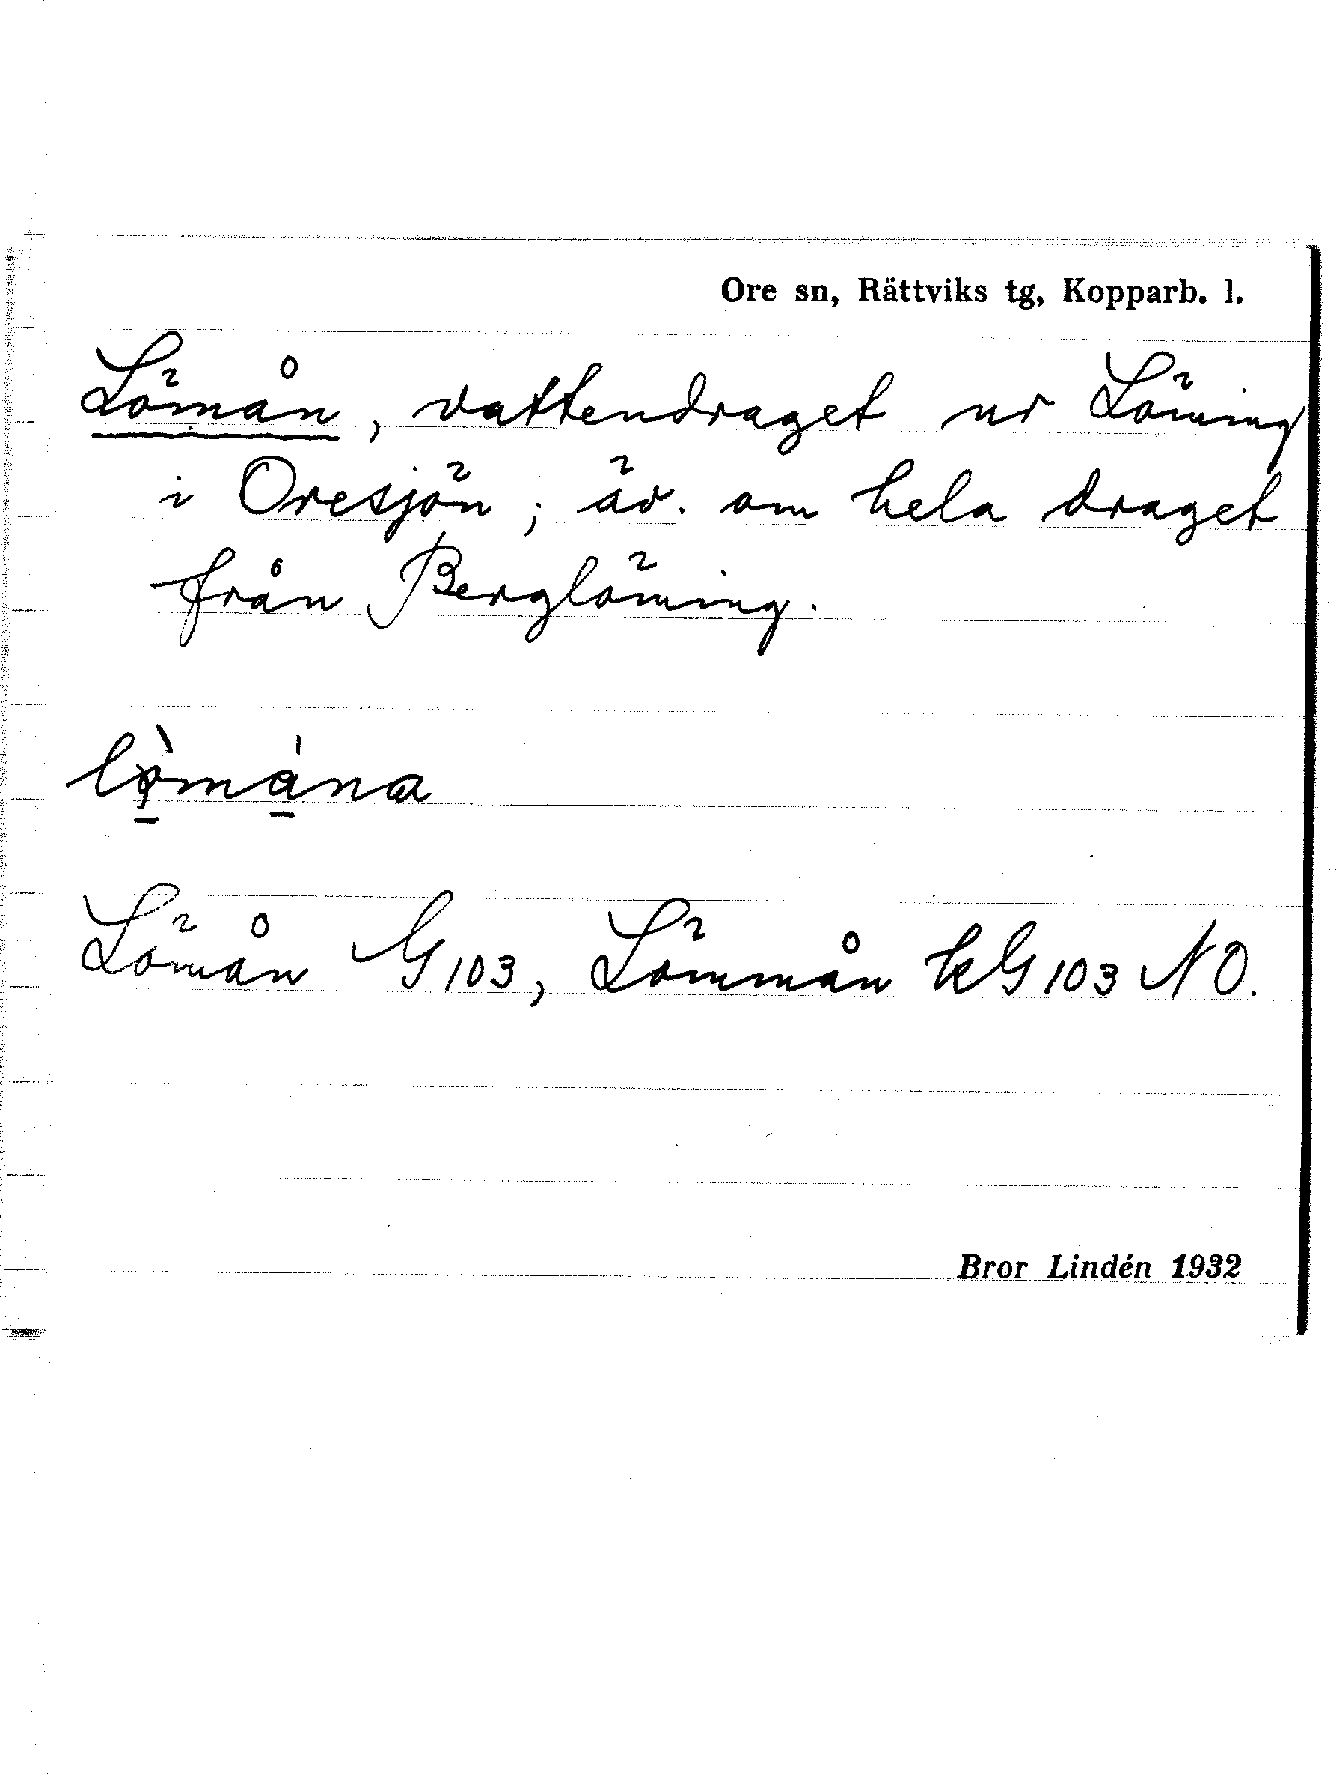 Ore sn, Rättviks tg, Kopparb. l.
Lömån, vattendraget ur Löming
i Oresjön; äv. om hela draget
från Berglöming.
lø̱̀mǻ̱na
Lömån G 103, Lömmån kG 103 NO.
Bror Lindén 1932